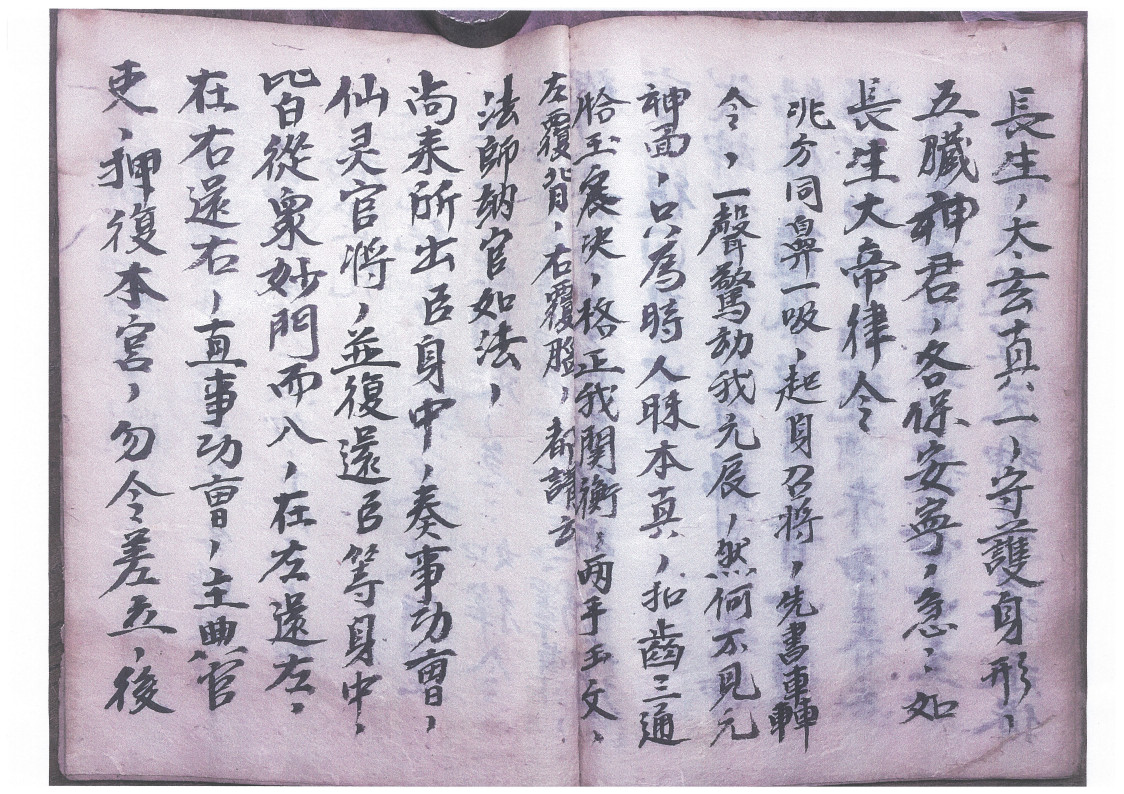 長生，太玄真一，守護身形，
五臟神君，各保安寧，急〻如
長生大帝律令
兆分同鼻一吸，起身召將，先書轟
令，一聲驚动我元辰，然何不見元
神面，只為時人昧本真，扣齒三通
恰玉宸决，格正我関衡，両手玉文，
左覆背，右覆膃，都請云
法師納官如法，
尚来所出臣身中，奏事功曹，
仙灵官将，並復還臣等身中，
皆從衆妙門而入，在左還左，
在右還右，直事功曹，主典官
吏，押復本宫，勿令差互，後